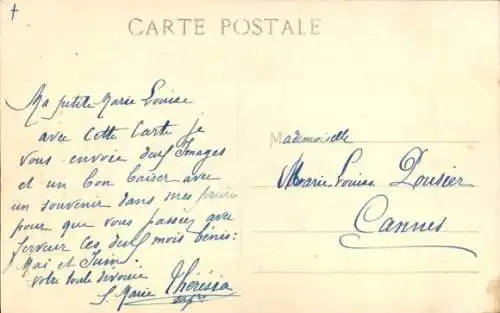 †
CARTE POSTALE
Ma petite Marie Louise
avec cette Carte je
vous envoie deux Images
et un bon baiser avec
un souvenir dans mes prières
pour que vous passiez avec
ferveur ces deux mois bénis:
Mai et Juin.
votre toute dévouée
S. Marie Thérésia
Mademoiselle
Marie Louise
Cannes